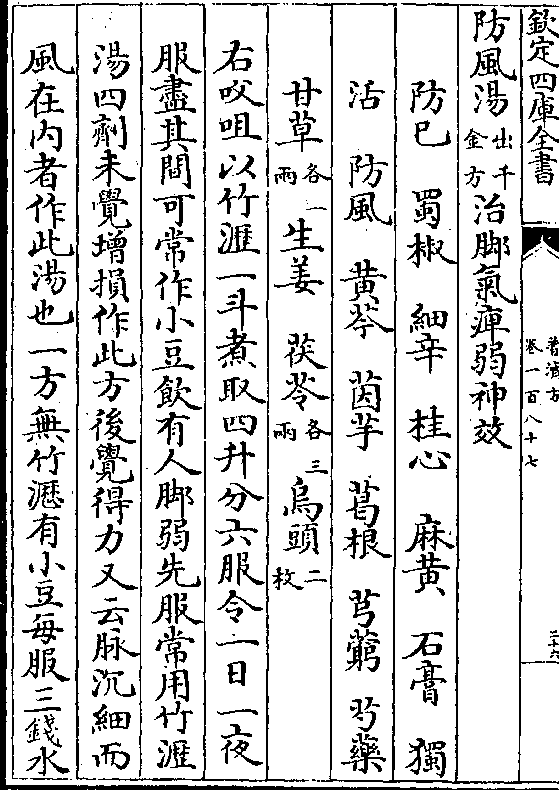 欽定四庫全書
普濟方
卷一百八十七
三十六
防風湯出千金方治脚氣痺弱神效
防已 蜀椒 細辛 桂心 麻黄 石膏 獨
活 防風 黄芩 茵芋 葛根 芎藭 芍藥
甘草各一兩 生姜 茯苓各三兩 烏頭二枚
右㕮咀以竹瀝一斗煮取四升分六服令一日一夜
服盡其間可常作小豆飲有人脚弱先服常用竹瀝
湯四劑未覺增損作此方後覺得力又云脉沉細而
風在内者作此湯也一方無竹瀝有小豆每服三錢水